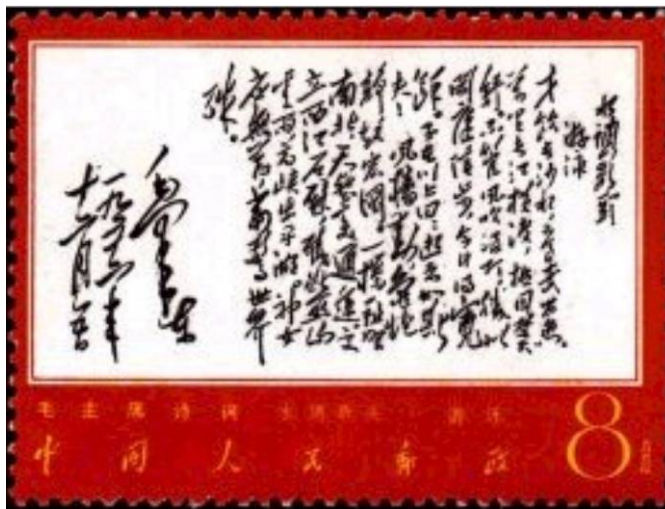 水调歌头
游泳
才饮长沙水，又食武昌鱼。
万里长江横渡，极目楚天
舒。不管风吹浪打，胜似
闲庭信步，今日得宽
馀。子在川上曰：逝者如斯
夫！风樯动，龟蛇
静，起宏图。一桥飞架
南北，天堑变通途。更立
西江石壁，截断巫山
云雨，高峡出平湖。神女
应无恙，当惊世界
殊。
毛泽东
一九五六年
十二月五日
毛主席诗词 水调歌头 游泳
中国人民邮政 8